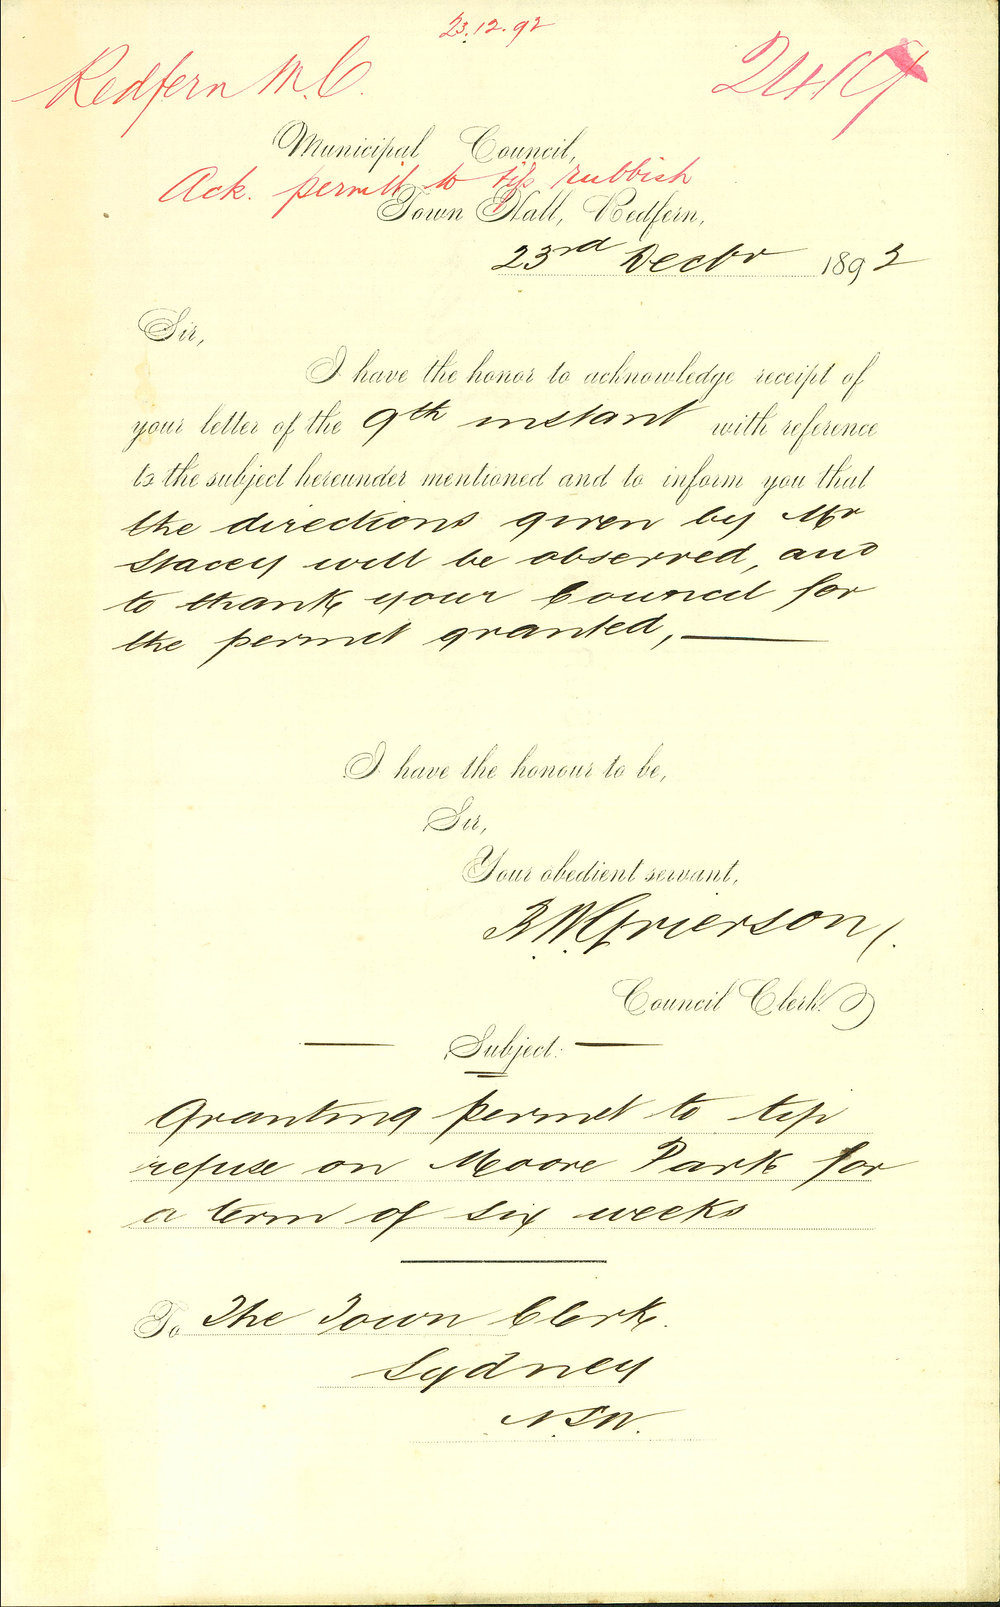 23.12.92
Redfern M.C.
Municipal Council,
Ack. permit to tip rubbish
Town Hall, Redfern,
23rd Decbr 1892
Sir,
I have the honor to acknowledge receipt of
your letter of the 9th instant with reference
to the subject hereunder mentioned and to inform you that
the directions given by Mr
Stacey will be observed, and
to thank your Council for
the permit granted,
I have the honour to be,
Sir,
Your obedient servant,
Grierson
Council Clerk.
Subject:
Granting permit to tip
refuse on Moore Park for
a term of six weeks
To The Town Clerk.
Sydney
N.S.W.